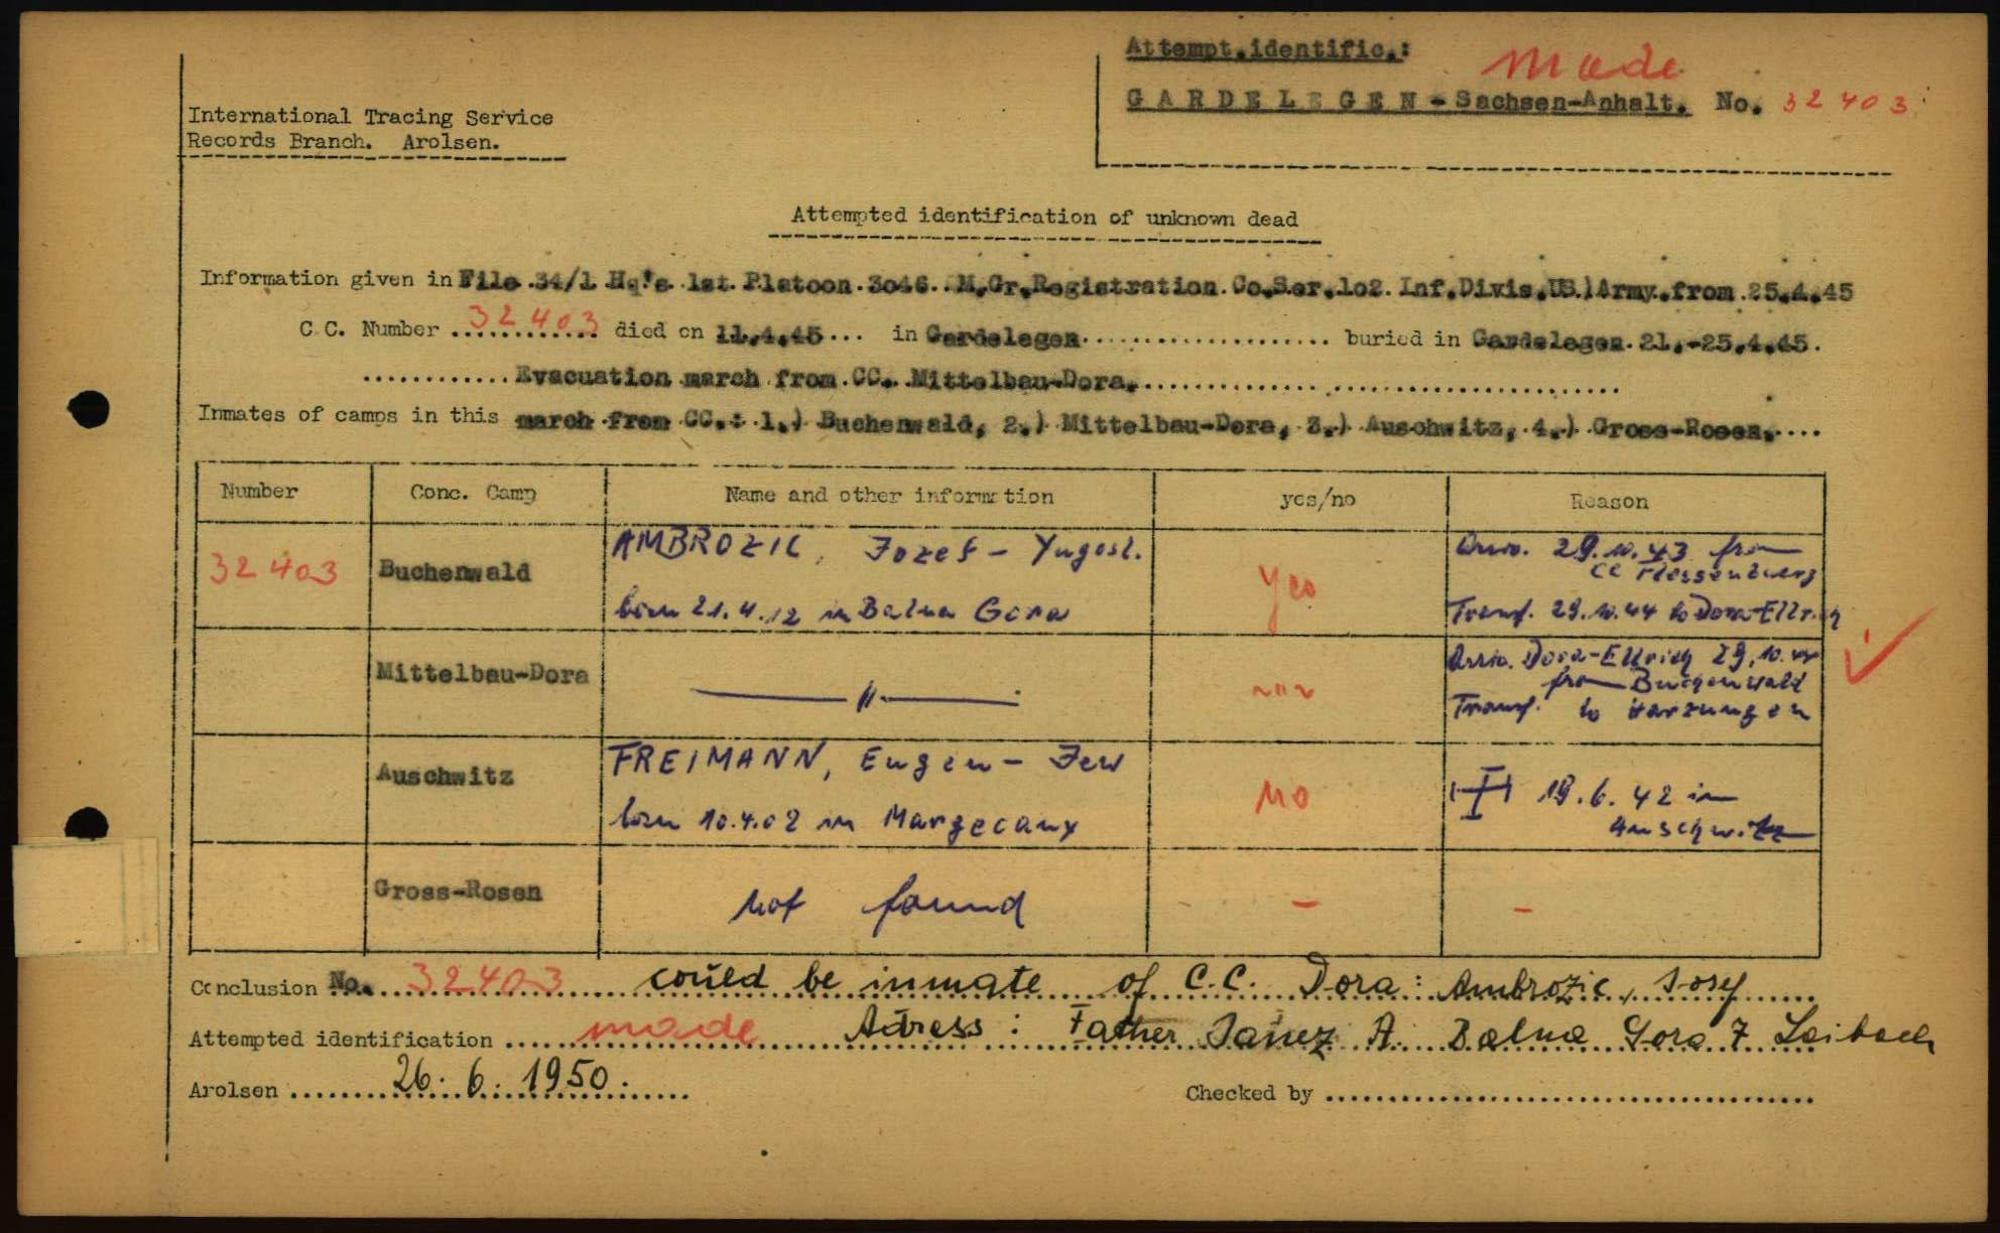 Attempt.identific.: made
International Tracing Service
Records Branch. Arolsen.
GARDELEGEN - Sachsen-Anhalt. No. 32403
Attempted identification of unknown dead
Information given in File 34/1 Hq's 1st. Platoon 3046. M.Gr.Registration Co.Ser.102 Inf.Divis.US.)Army.from 25.4.45
C.C. Number 32403 died on 11.4.45 in Gardelegen buried in Gardelegen 21.-25.4.45.
Evacuation march from CC. Mittelbau-Dora.
Inmates of camps in this march from CC.: 1.) Buchenwald, 2.) Mittelbau-Dora, 3.) Auschwitz, 4.) Gross-Rosen.
Number Conc. Camp Name and other information yes/no Reason
32403 Buchenwald AMBROZIC, Jozef - Yugosl. yes Arriv. 29.10.43 from
CC Flossenbuerg
born 21.4.12 in Balna Gora Transf. 29.10.44 to Dora-Ellrich
Mittelbau-Dora —— " —— ~"~ Arriv. Dora-Ellrich 29.10.44
from Buchenwald
Transf. to Harzungen
Auschwitz FREIMANN, Eugen - Jew no 19.6.42 in
born 10.4.02 in Margecany Auschwitz
Gross-Rosen not found - -
Conclusion No. 32403 could be inmate of C.C. Dora: Ambrozic, Josef
Attempted identification made Adress: Father Janez A. Balna Gora 7 Laibach
Arolsen 26.6.1950. Checked by